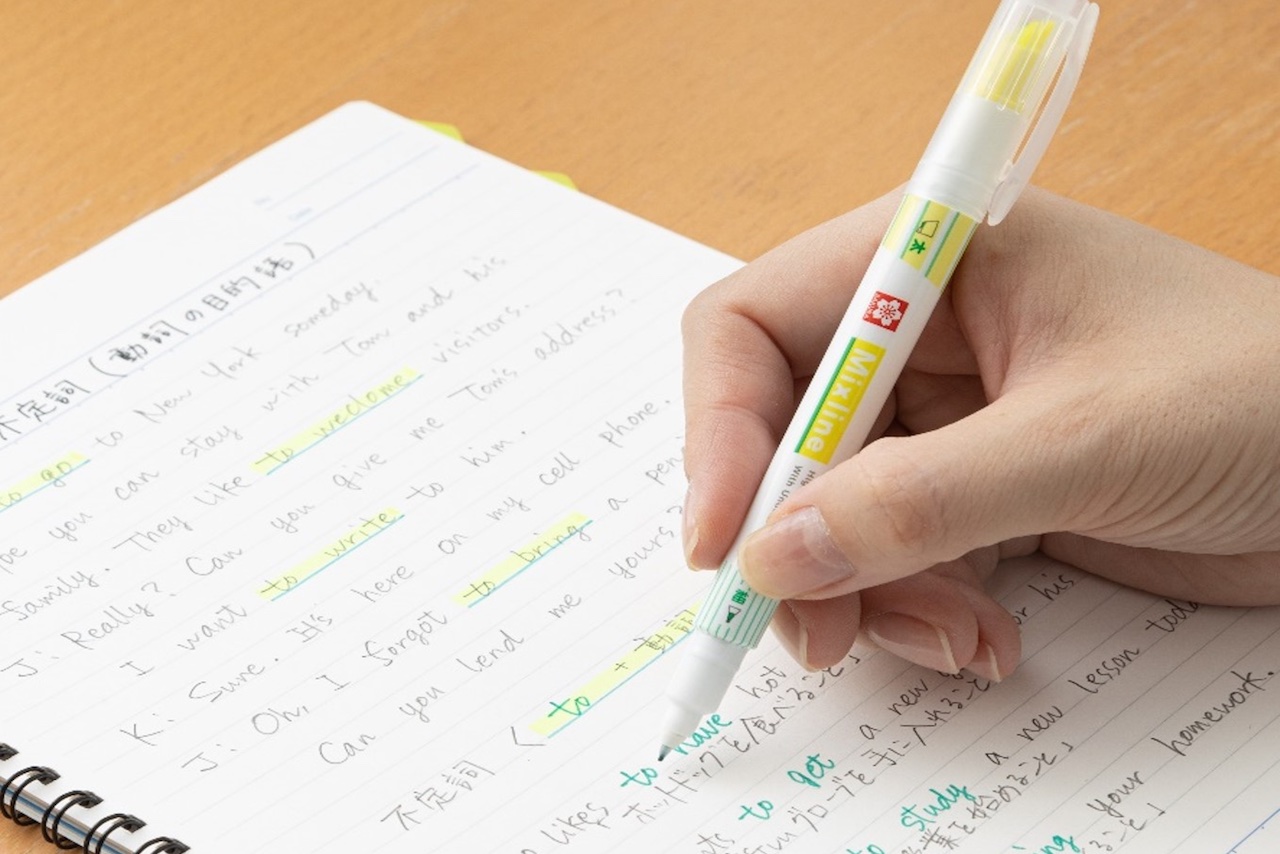 不定詞(動詞の目的語)
to go to New York someday.
you can stay with Tom and his
family. They like to weclome visitors.
J: Really? Can you give me Tom's address?
I want to write to him.
K: Sure. It's here on my cell phone.
J: Oh, I forgot to bring a pen
Can you lend me yours?
不定詞 < to + 動詞
likes to have hot
ホットドッグを食べること」
to get a new
グローブを手に入れること」
for his
to study a new lesson
業を始めること」
your homework.
ること」
太
Mixline
細